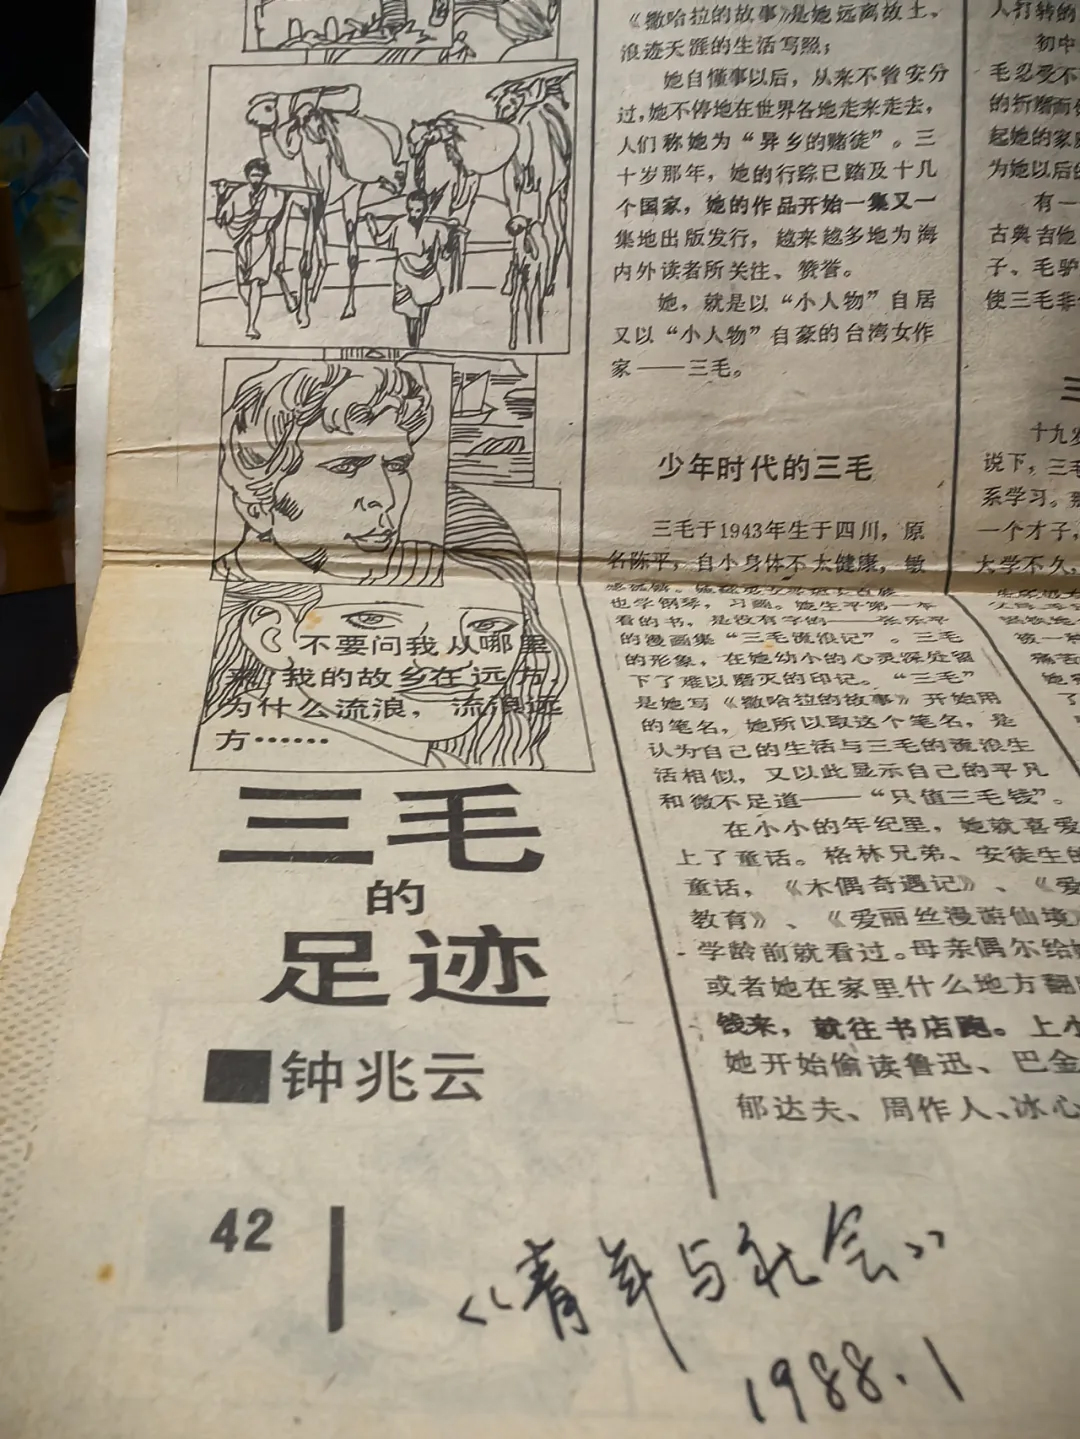 不要问我从哪里
来，我的故乡在远方，
为什么流浪，流浪远
方……
三毛
的
足迹
■钟兆云
42
《青年与社会》
1988.1
《撒哈拉的故事》是她远离故土、
浪迹天涯的生活写照；
她自懂事以后，从来不曾安分
过，她不停地在世界各地走来走去，
人们称她为“异乡的赌徒”。三
十岁那年，她的行踪已踏及十几
个国家，她的作品开始一集又一
集地出版发行，越来越多地为海
内外读者所关注、赞誉。
她，就是以“小人物”自居
又以“小人物”自豪的台湾女作
家——三毛。
少年时代的三毛
三毛于1943年生于四川，原
名陈平，自小身体不太健康，敏
也学钢琴，习画。她生平第一本
看的书，是没有字的——张乐平
的漫画集“三毛流浪记”。三毛
的形象，在她幼小的心灵深处留
下了难以磨灭的印记。“三毛”
是她写《撒哈拉的故事》开始用
的笔名，她所以取这个笔名，是
认为自己的生活与三毛的流浪生
活相似，又以此显示自己的平凡
和微不足道——“只值三毛钱”。
在小小的年纪里，她就喜爱
上了童话。格林兄弟、安徒生的
童话，《木偶奇遇记》、《爱
教育》、《爱丽丝漫游仙境》
学龄前就看过。母亲偶尔给
或者她在家里什么地方翻
钱来，就往书店跑。上小
她开始偷读鲁迅、巴金
郁达夫、周作人、冰心
人打转的
初中
毛忍受不
的折磨而
起她的家
为她以后的
有一
古典吉他
子、毛驴
使三毛非
三
十九岁
说下，三毛
系学习。
一个才子，
大学不久，
被一种
痛苦
她
了